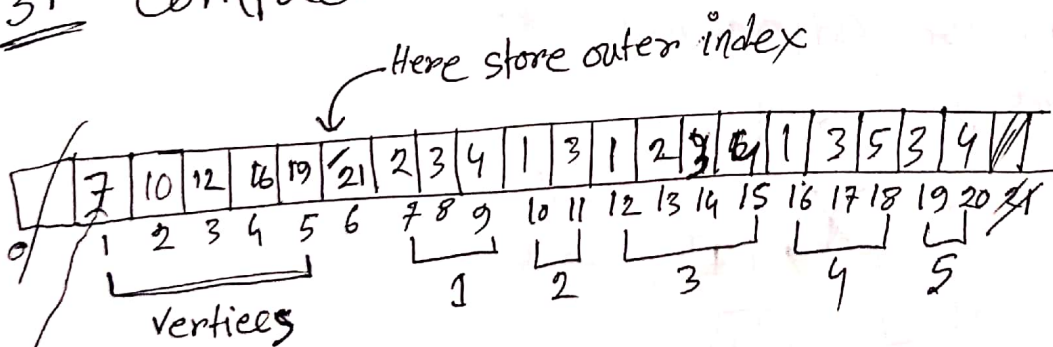 3.
Here store outer index
7 10 12 16 19 21 2 3 4 1 3 1 2 4 1 3 5 3 4
0 1 2 3 4 5 6 7 8 9 10 11 12 13 14 15 16 17 18 19 20 21
vertiees 1 2 3 4 5